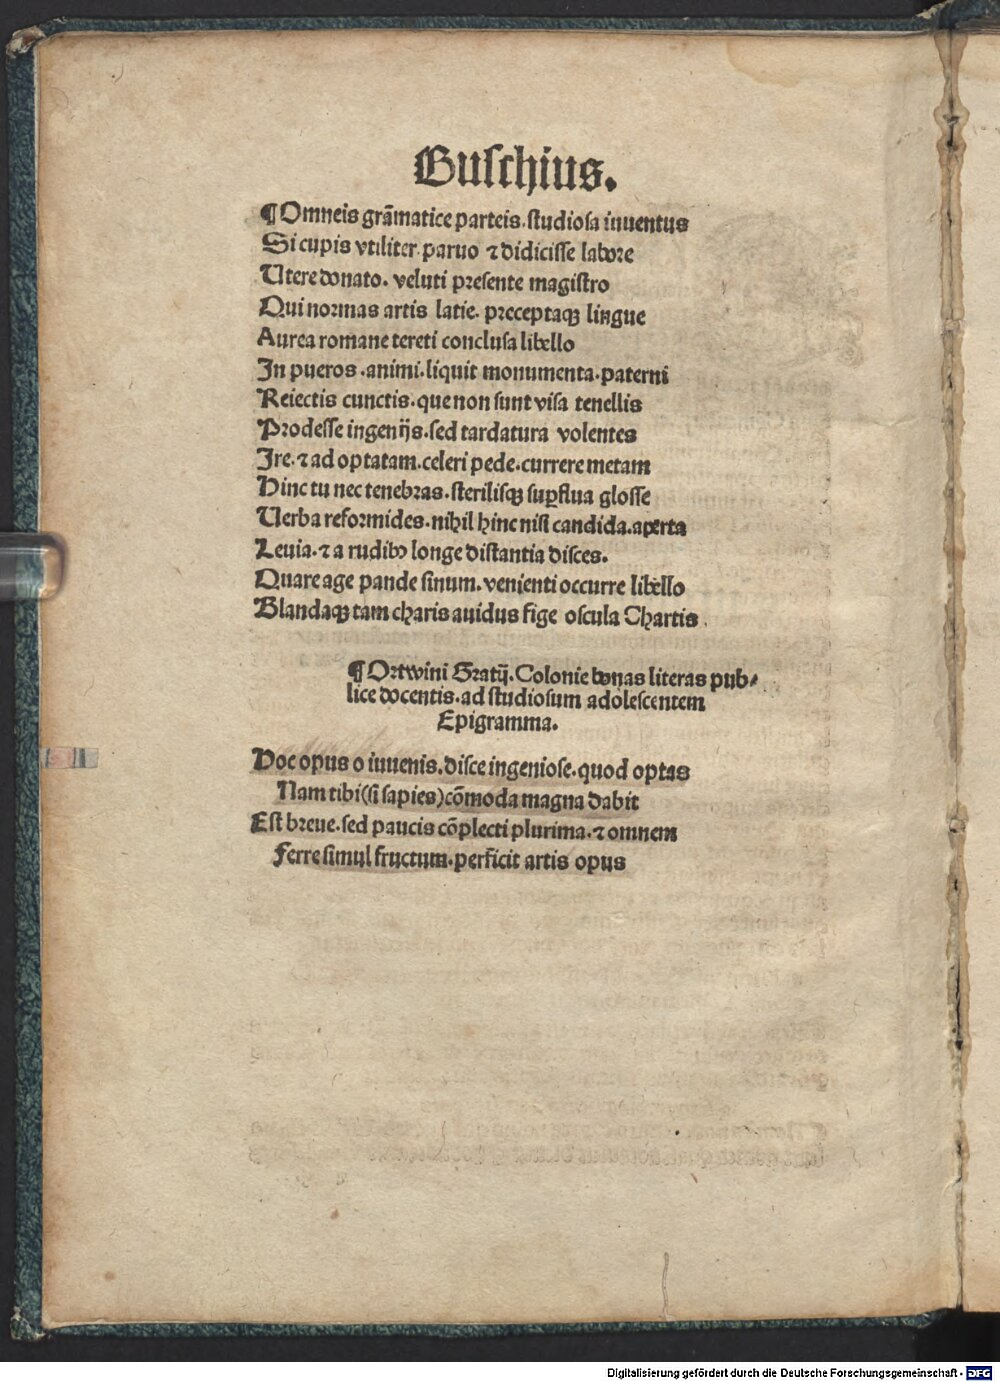 Buſchius.
¶Omneis grãmatice parteis.ſtudioſa iuuentus
Si cupis vtiliter.paruo ⁊ didiciſſe labore
Utere donato. veluti preſente magiſtro
Qui normas artis latie. preceptaqꝫ lingue
Aurea romane tereti concluſa libello
In pueros .animi.liquit monumenta.paterni
Reiectis cunctis.que non ſunt viſa tenellis
Prodeſſe ingenijs.ſed tardatura volentes
Ire.⁊ ad optatam.celeri pede.currere metam
Hinc tu nec tenebras.ſteriliſqꝫ ſuꝑflua gloſſe
Uerba reformides.nihil hinc niſi candida.aperta
Leuia.⁊ a rudibꝰ longe diſtantia diſces.
Quare age pande ſinum.venienti occurre libello
Blandaqꝫ tam charis auidus fige oſcula Chartis.
¶Ortwini Gratij.Colonie bonas literas pub⸗
lice docentis.ad ſtudioſum adoleſcentem
Epigramma.
Hoc opus o iuuenis.diſce ingenioſe.quod optas
Nam tibi(ſi ſapies)cõmoda magna dabit
Eſt breue.ſed paucis cõplecti plurima.⁊ omnem
Ferre ſimul fructum.perficit artis opus
Digitalisierung gefördert durch die Deutsche Forschungsgemeinschaft - DFG